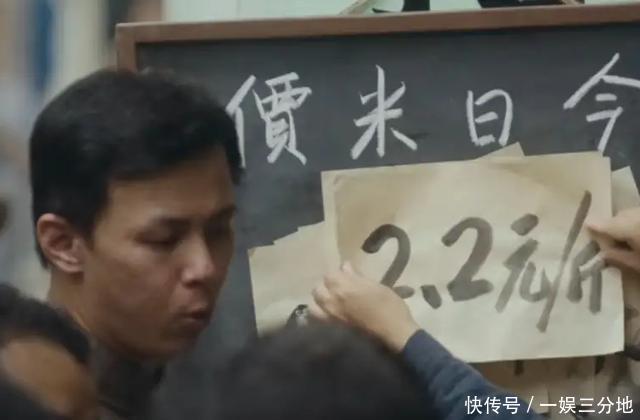 今日米價
2.2元/斤
快传号／一娱三分地